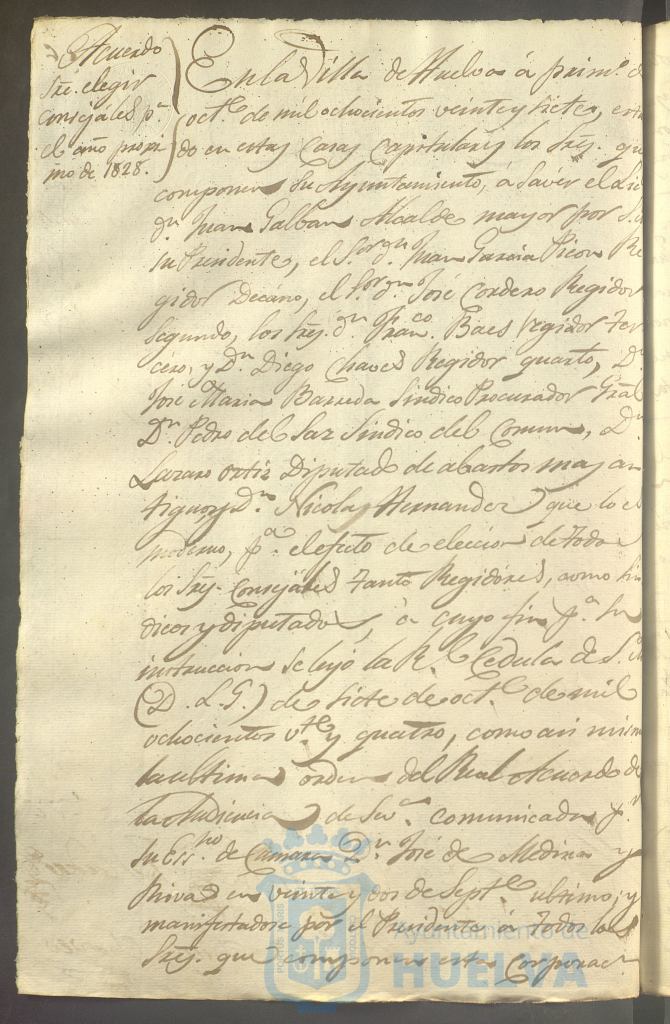 Acuerdo
sre. elegir
consejales pa.
el año proxi
mo de 1828.
En la Villa de Huelva á prim.o de
oct.e de mil ochocientos veinte y siete, estan
do en estas Casas Capitulares los Sres. que
componen su Ayuntamiento, á saver el Lic.
dn. Juan Galban Alcalde mayor por S.
su Presidente, el S.or dn. Juan Garcia Picon Re
gidor Decano, el S.or dn. José Cordero Regidor
segundo, los Sres. dn. Fran.co Baes regidor ter
cero, y Dn. Diego Chaves Regidor quarto, Dn.
José Maria Barreda Sindico Procurador Gral
Dn. Pedro del Saz Sindico del Comun, Dn.
Lazaro Ortiz Diputado de abastos mas an
tiguo, y Dn. Nicolas Hernandez que lo es
moderno, p.a el efecto de eleccion de todos
los Sres. Consejales tanto Regidores, como sin
dicos y diputados, á cuyo fin p.a su
instruccion se leyó la R.l Cedula de S.M.
(D. L. G.) de siete de oct.e de mil
ochocientos v.te y quatro, como asi mism
la ultima orden del Real Acuerdo de
la Audiencia de Sev.a comunicada p.r
su Ess.no de Camara Dn. José de Medina y
Rivas en veinte y dos de Sept.e ultimo; y
manifestadose por el Presidente á todos los
Sres. que componen esta Corporac.n
Ayuntamiento de
HUELVA